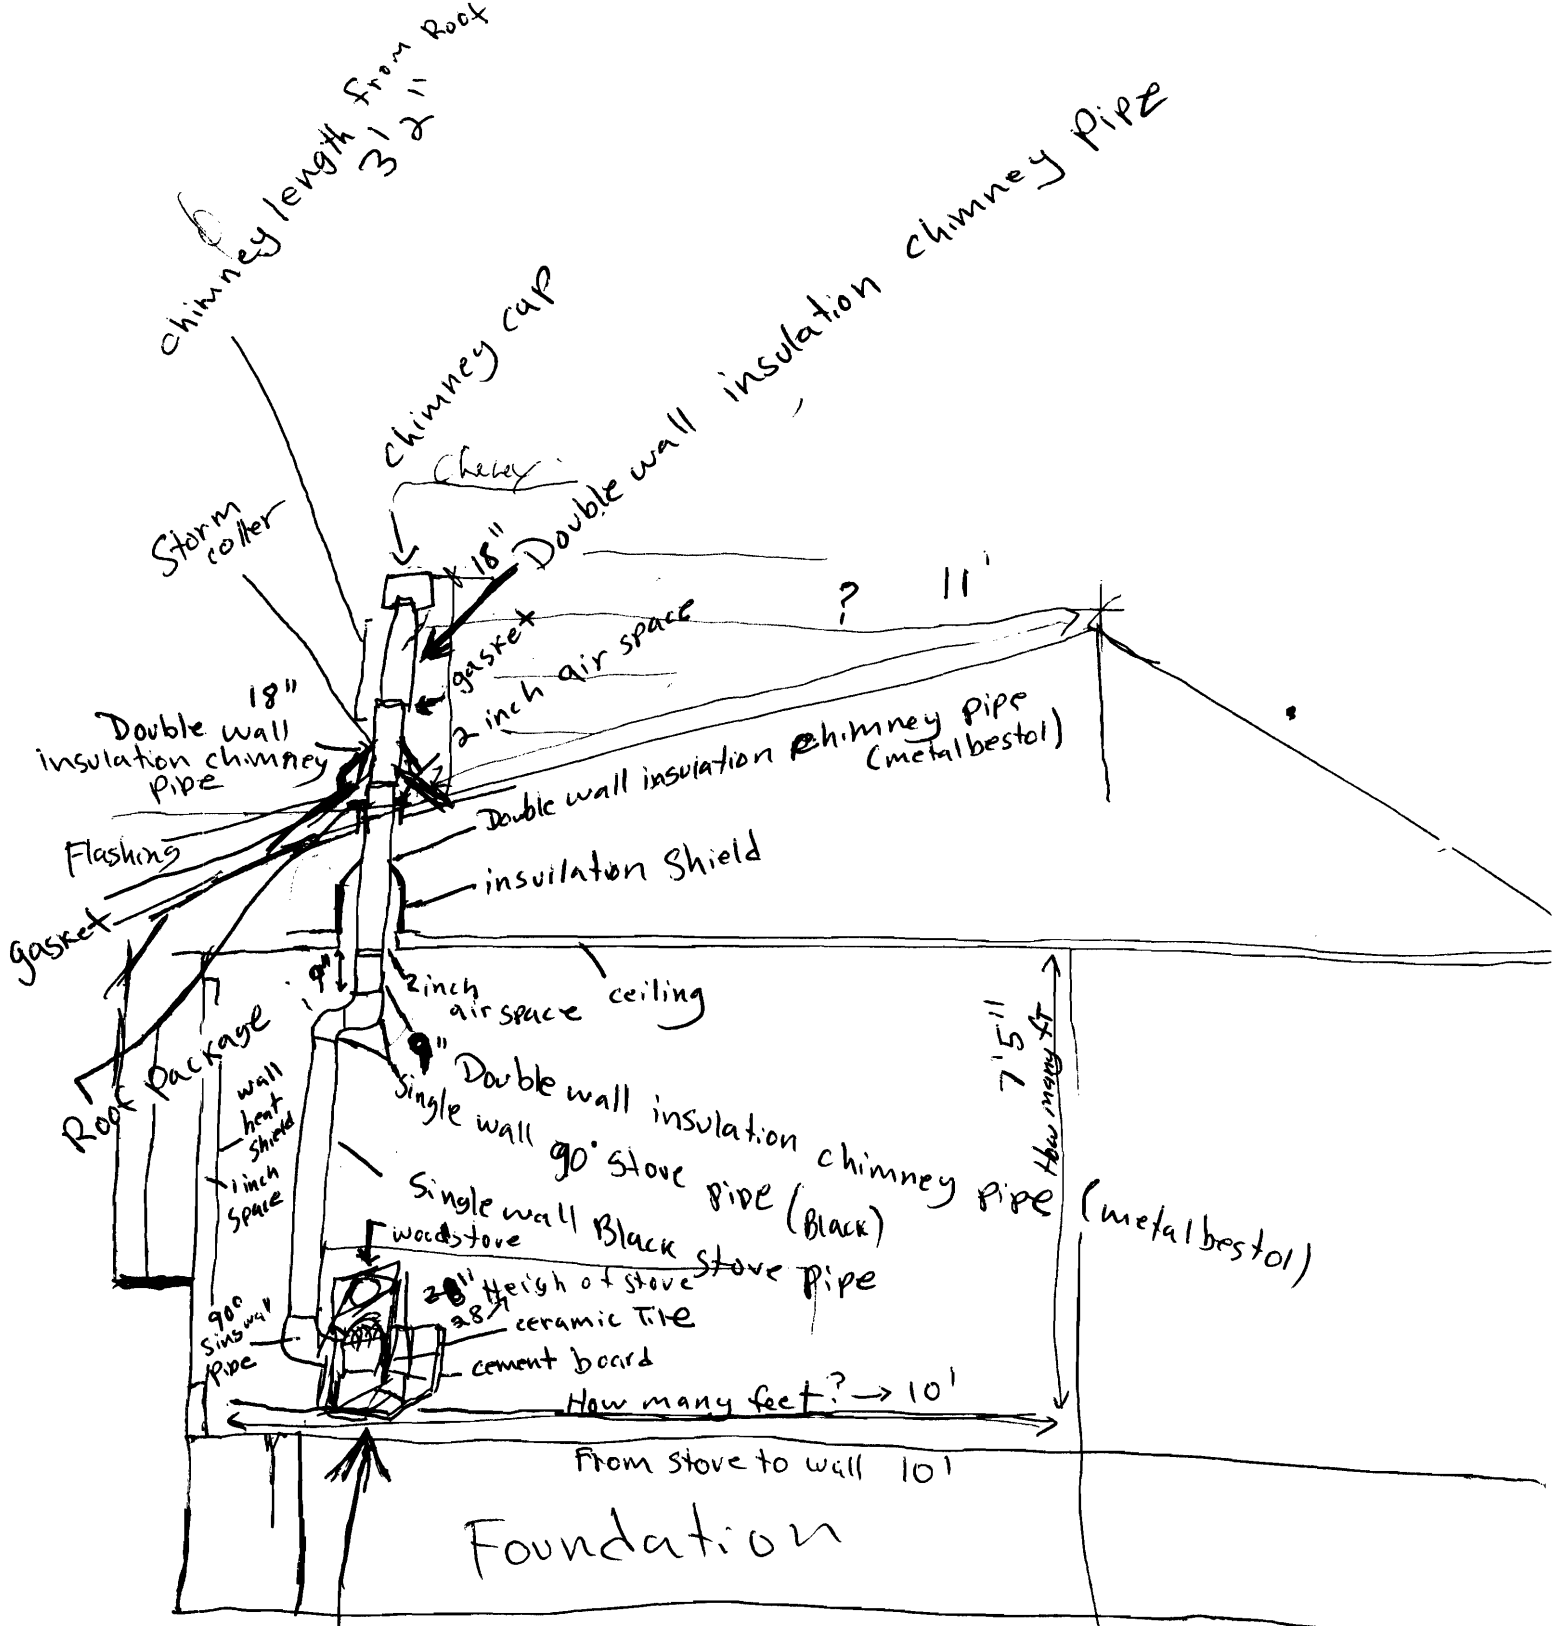 chimney length from Roof
3' 2"
chimney cap
Double wall insulation chimney pipe
Storm
coller
18"
gasket
2 inch air space
? 11'
18"
Double wall
insulation chimney
pipe
Flashing
gasket
Double wall insulation chimney pipe
(metalbestol)
insuilation Shield
9"
2 inch
air space
ceiling
Roof package
wall
heat
shield
1 inch
space
9" Double wall insulation chimney pipe (metalbestol)
Single wall 90° Stove pipe (Black)
Single wall Black stove pipe
7' 5"
How many ft
woodstove
Heigh of stove
28"
ceramic Tile
cement board
90°
pipe
How many feet? → 10'
From stove to wall 10'
Foundation